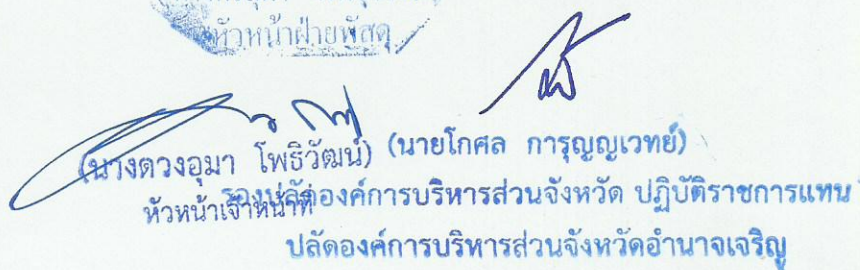 หัวหน้าฝ่ายพัสดุ
(นางดวงอุมา โพธิวัฒน์) (นายโกศล การุญญเวทย์)
หัวหน้าเจ้าหน้าที่ รองปลัดองค์การบริหารส่วนจังหวัด ปฏิบัติราชการแทน
ปลัดองค์การบริหารส่วนจังหวัดอำนาจเจริญ